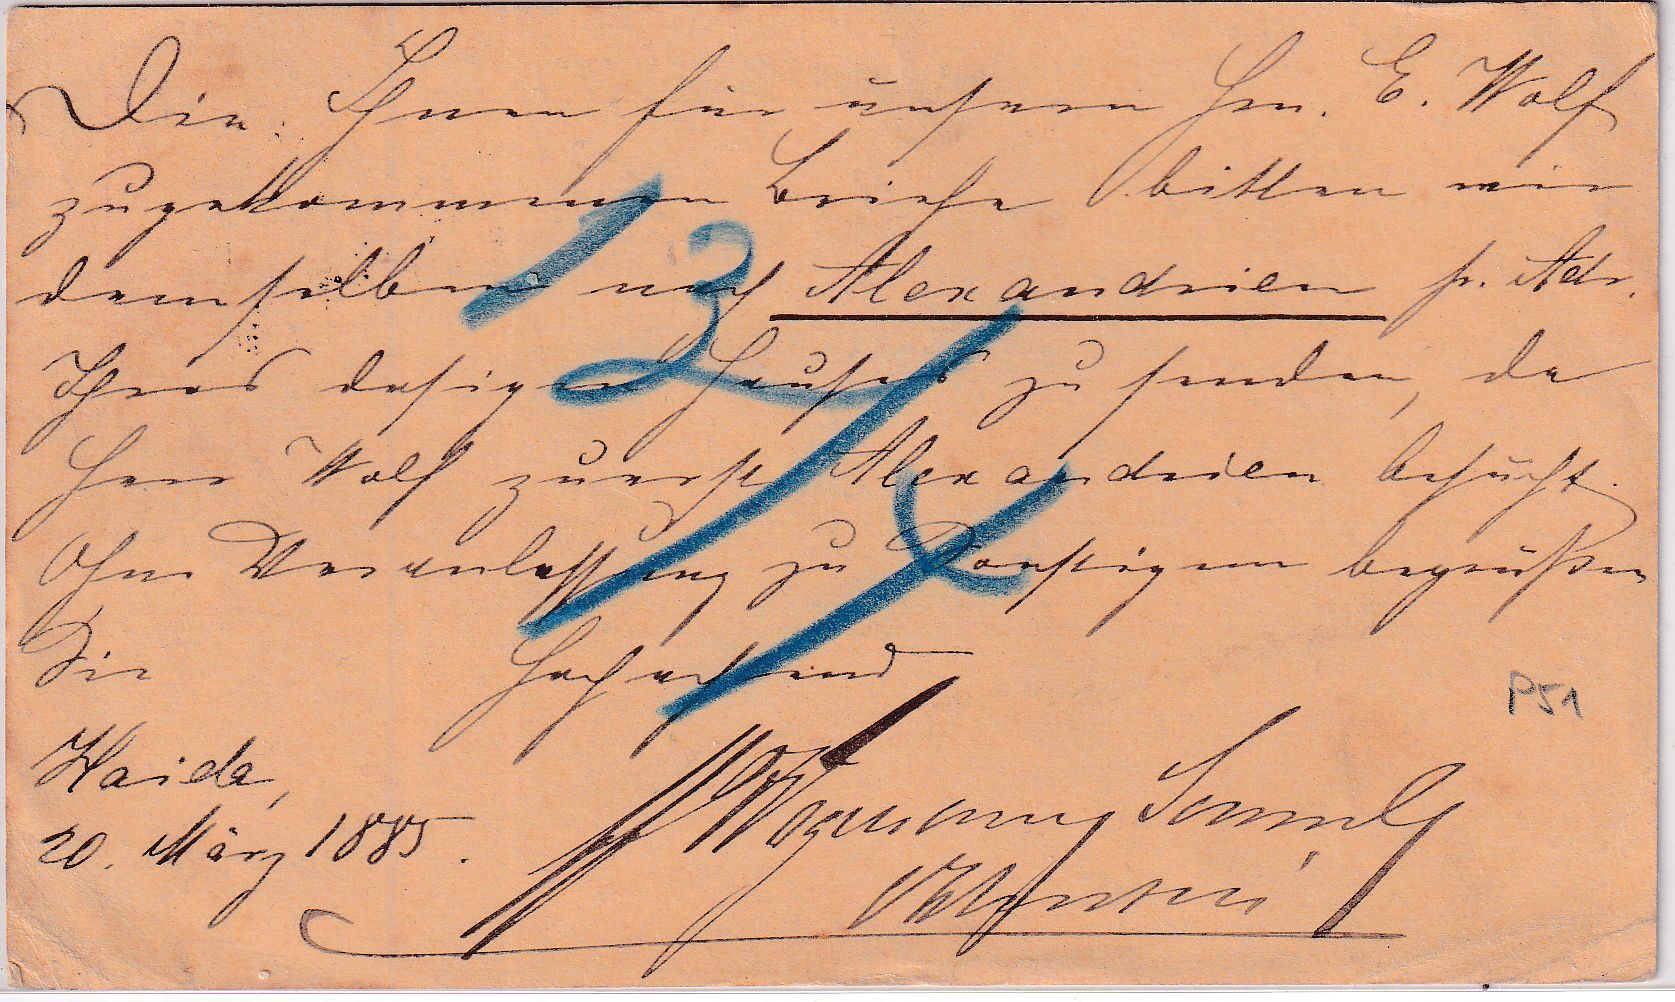 Die Ihnen für unsern Hrn. E. Wolf
zugekommenen Briefe bitten wir
demselben nach Alexandrien pr. Adr.
Ihres dasigen Hauses zu senden, da
Herr Wolf zuerst Alexandrien besucht.
Ohne Veranlassung zu Sonstigem begrüßen
Sie Hochachtend
Haida,
20. März 1885.
P51